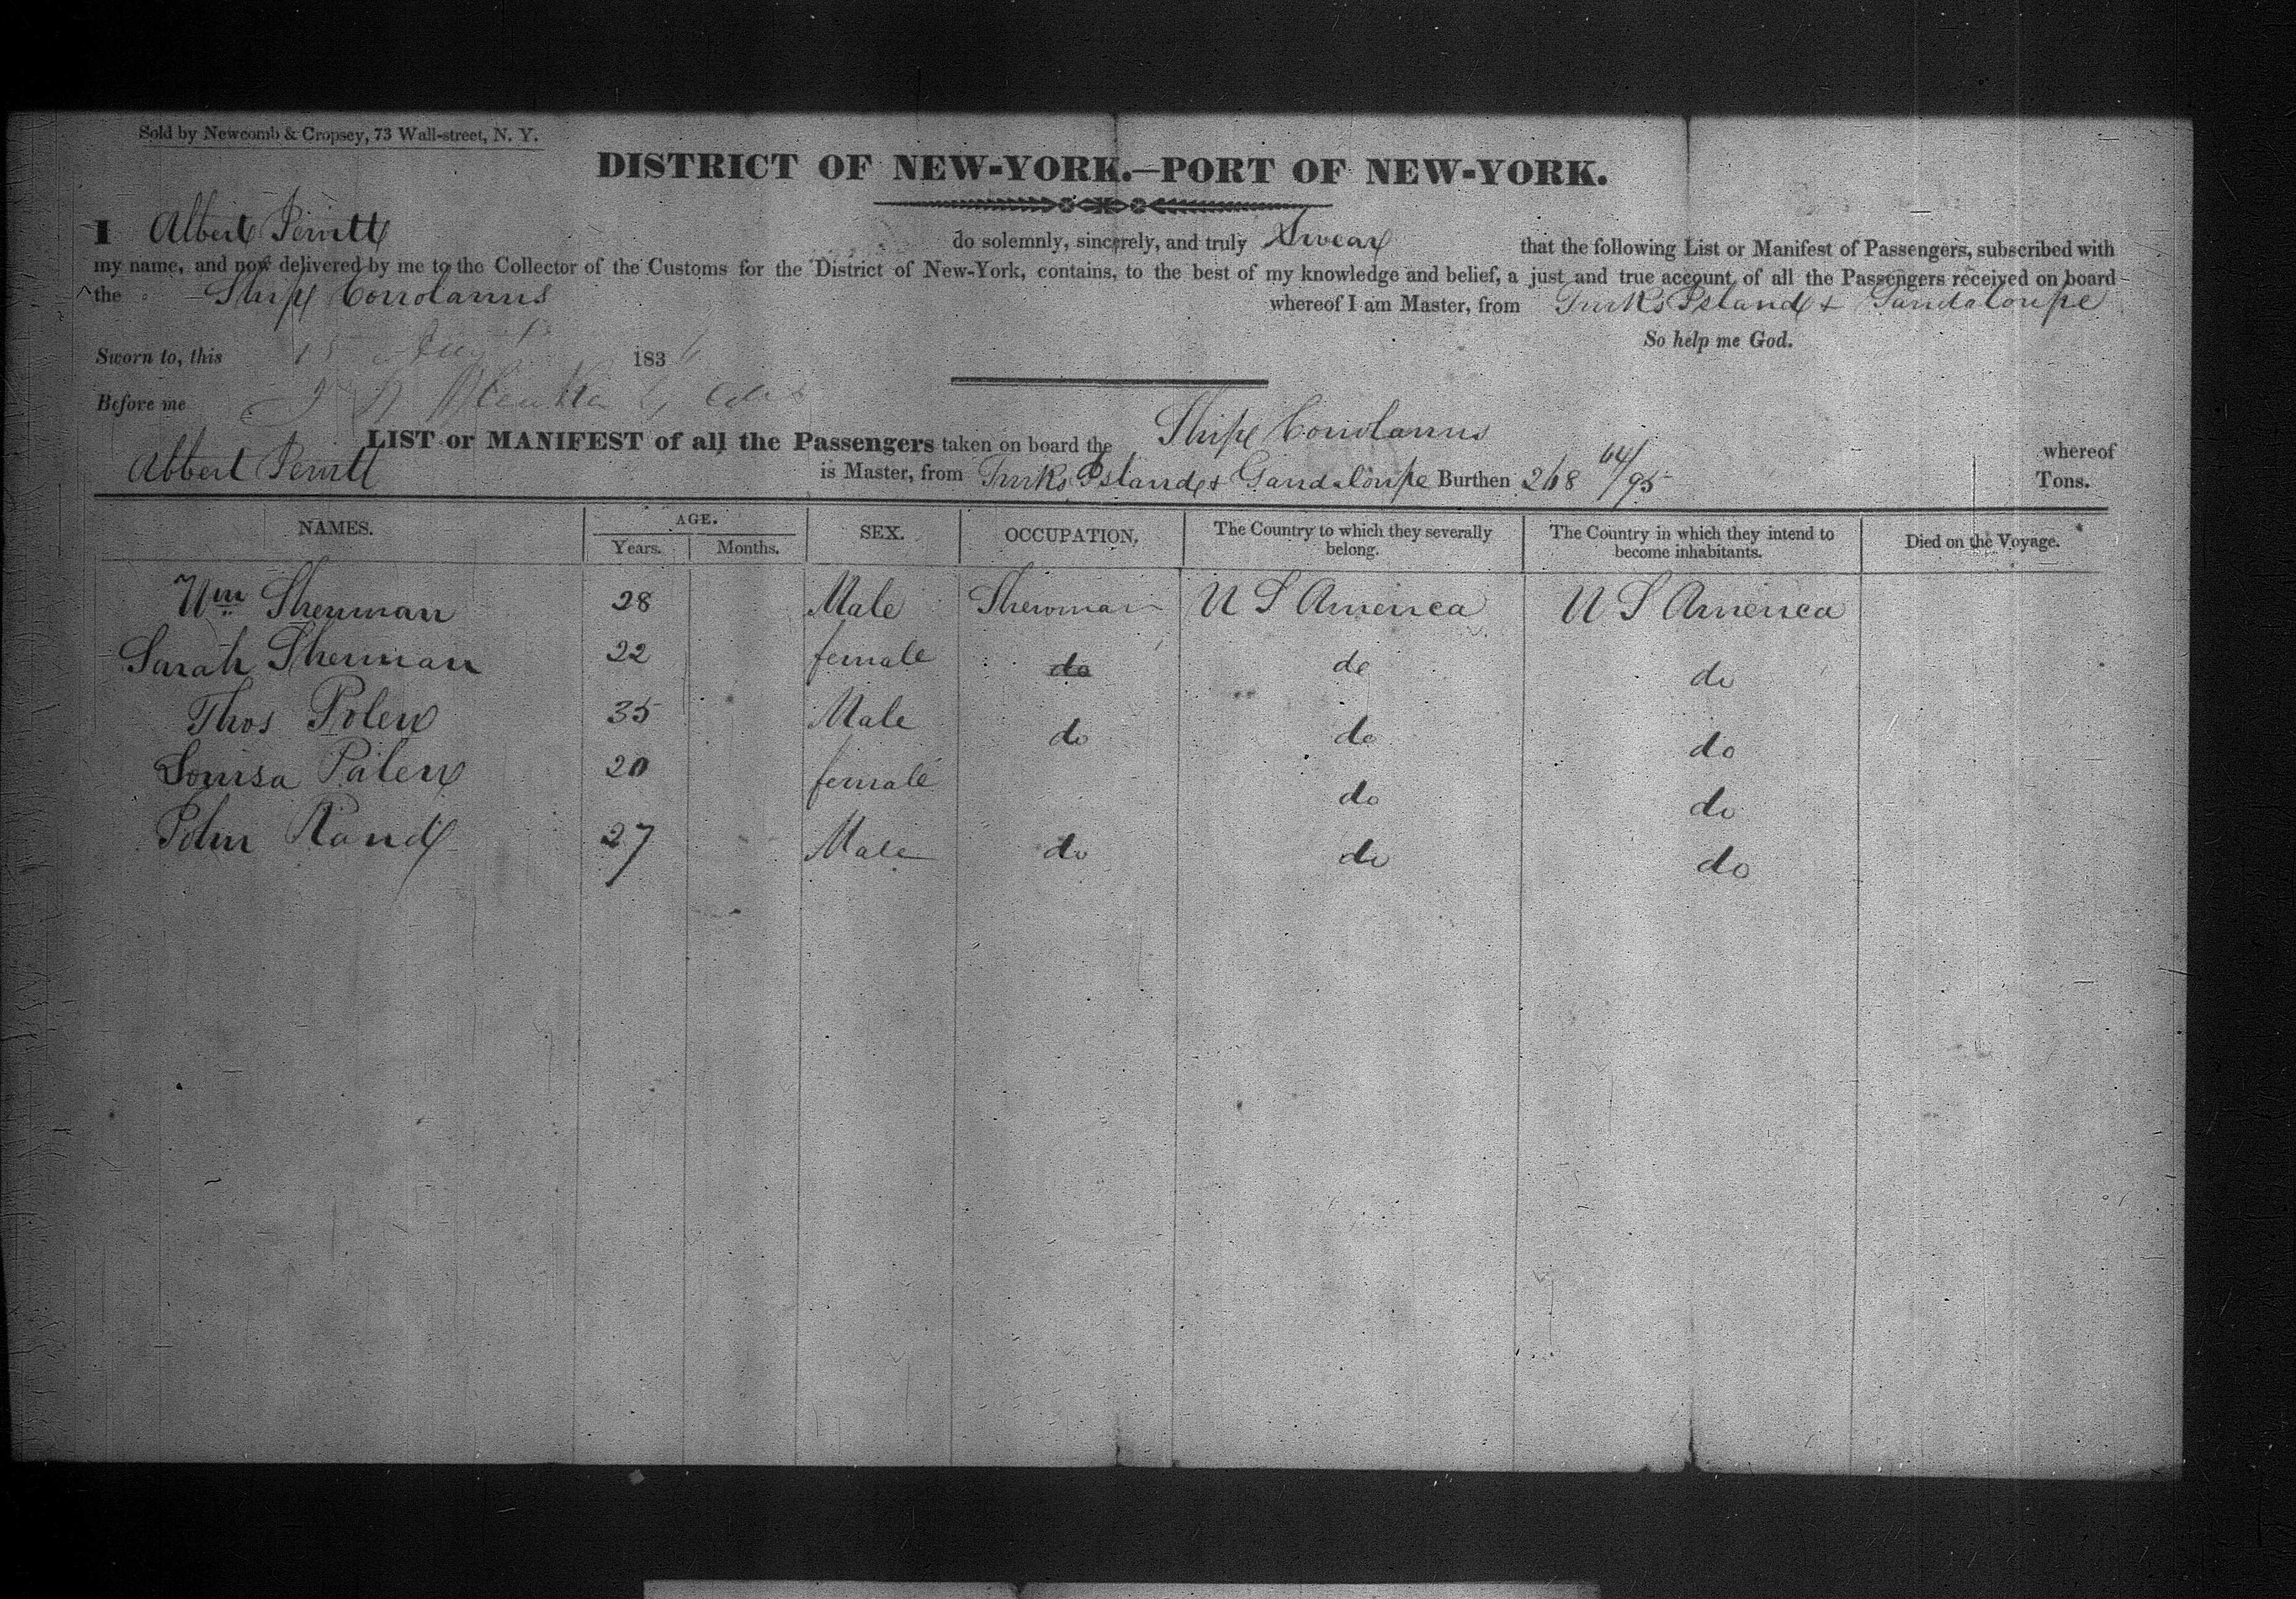 Sold by Newcomb & Cropsey, 73 Wall-street, N. Y.
DISTRICT OF NEW-YORK.—PORT OF NEW-YORK.
I Albert Perritt do solemnly, sincerely, and truly Swear that the following List or Manifest of Passengers, subscribed with
my name, and now delivered by me to the Collector of the Customs for the District of New-York, contains, to the best of my knowledge and belief, a just and true account of all the Passengers received on board
the Ship Coriolanus whereof I am Master, from Turks Island & Gaudaloupe
So help me God.
Sworn to, this 15 Augt 1836
Before me
LIST or MANIFEST of all the Passengers taken on board the Ship Coriolanus whereof
Albert Perritt is Master, from Turks Island & Gaudaloupe Burthen 268 64/95 Tons.
NAMES. AGE. SEX. OCCUPATION. The Country to which they severally belong. The Country in which they intend to become inhabitants. Died on the Voyage.
Years. Months.
Wm Sherman 28 Male Showman U S America U S America
Sarah Sherman 22 female do do do
Thos Polen 35 Male do do do
Louisa Polen 20 female do do
John Rand 27 Male do do do